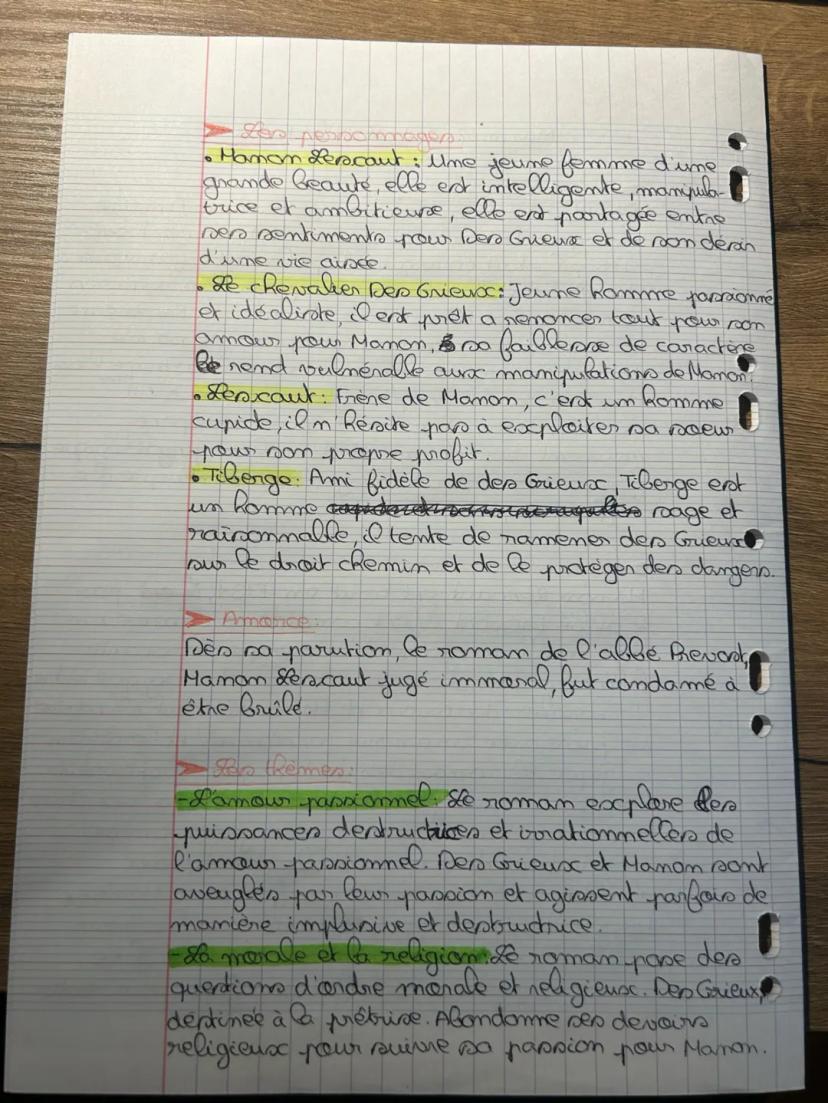 Les personnages:
• Manon Lescaut : Une jeune femme d'une
grande beauté, elle est intelligente, manipula-
trice et ambitieuse, elle est partagée entre
ses sentiments pour Des Grieux et de son désir
d'une vie aisée.
• Le chevalier Des Grieux : Jeune homme passionné
et idéaliste, il est prêt a renoncer tout pour son
amour pour Manon, sa faiblesse de caractère
le rend vulnérable aux manipulations de Manon.
• Lescaut : Frère de Manon, c'est un homme
cupide, il n'hésite pas à exploiter sa soeur
pour son propre profit.
• Tiberge : Ami fidèle de des Grieux, Tiberge est
un homme sage et
raisonnable, il tente de ramener des Grieux
sur le droit chemin et de le protéger des dangers.
Amorce:
Dès sa parution, le roman de l'abbé Prevost,
Manon Lescaut jugé immoral, fut condamé à
être brûlé.
Les thèmes:
- L'amour passionnel : Le roman explore les
puissances destructrices et irrationnelles de
l'amour passionnel. Des Grieux et Manon sont
aveuglés par leur passion et agissent parfois de
manière implusive et destructrice.
- La morale et la religion : Le roman pose des
questions d'ordre morale et religieux. Des Grieux,
destinée à la prêtrise. Abandonne ses devoirs
religieux pour suivre sa passion pour Manon.